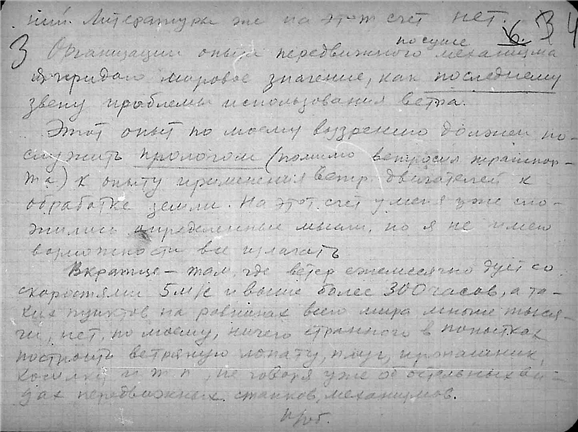 ний. Литературы же на этот счет нет.
6. 34
3 Организации опыта передвижного по суше механизма
я придаю мировое значение, как последнему
звену проблемы использования ветра.
Этот опыт по моему воззрению должен по-
служить прологом (помимо ветросил транспор-
та) к опыту применения ветр двигателей к
обработке земли. На этот счет у меня уже сло-
жились определенные мысли, но я не имею
возможности все излагать
Вкратце – там, где ветер ежемесячно дует со
скоростями 5 м/с и выше более 300 часов, а та-
ких пунктов на равнинах всего мира многие тыся-
чи, нет, по моему, ничего странного в попытках
построить ветряную лопату, плуг, пропашник,
косилку и т п, не говоря уже об остальных ви-
дах передвижных станков, механизмов.